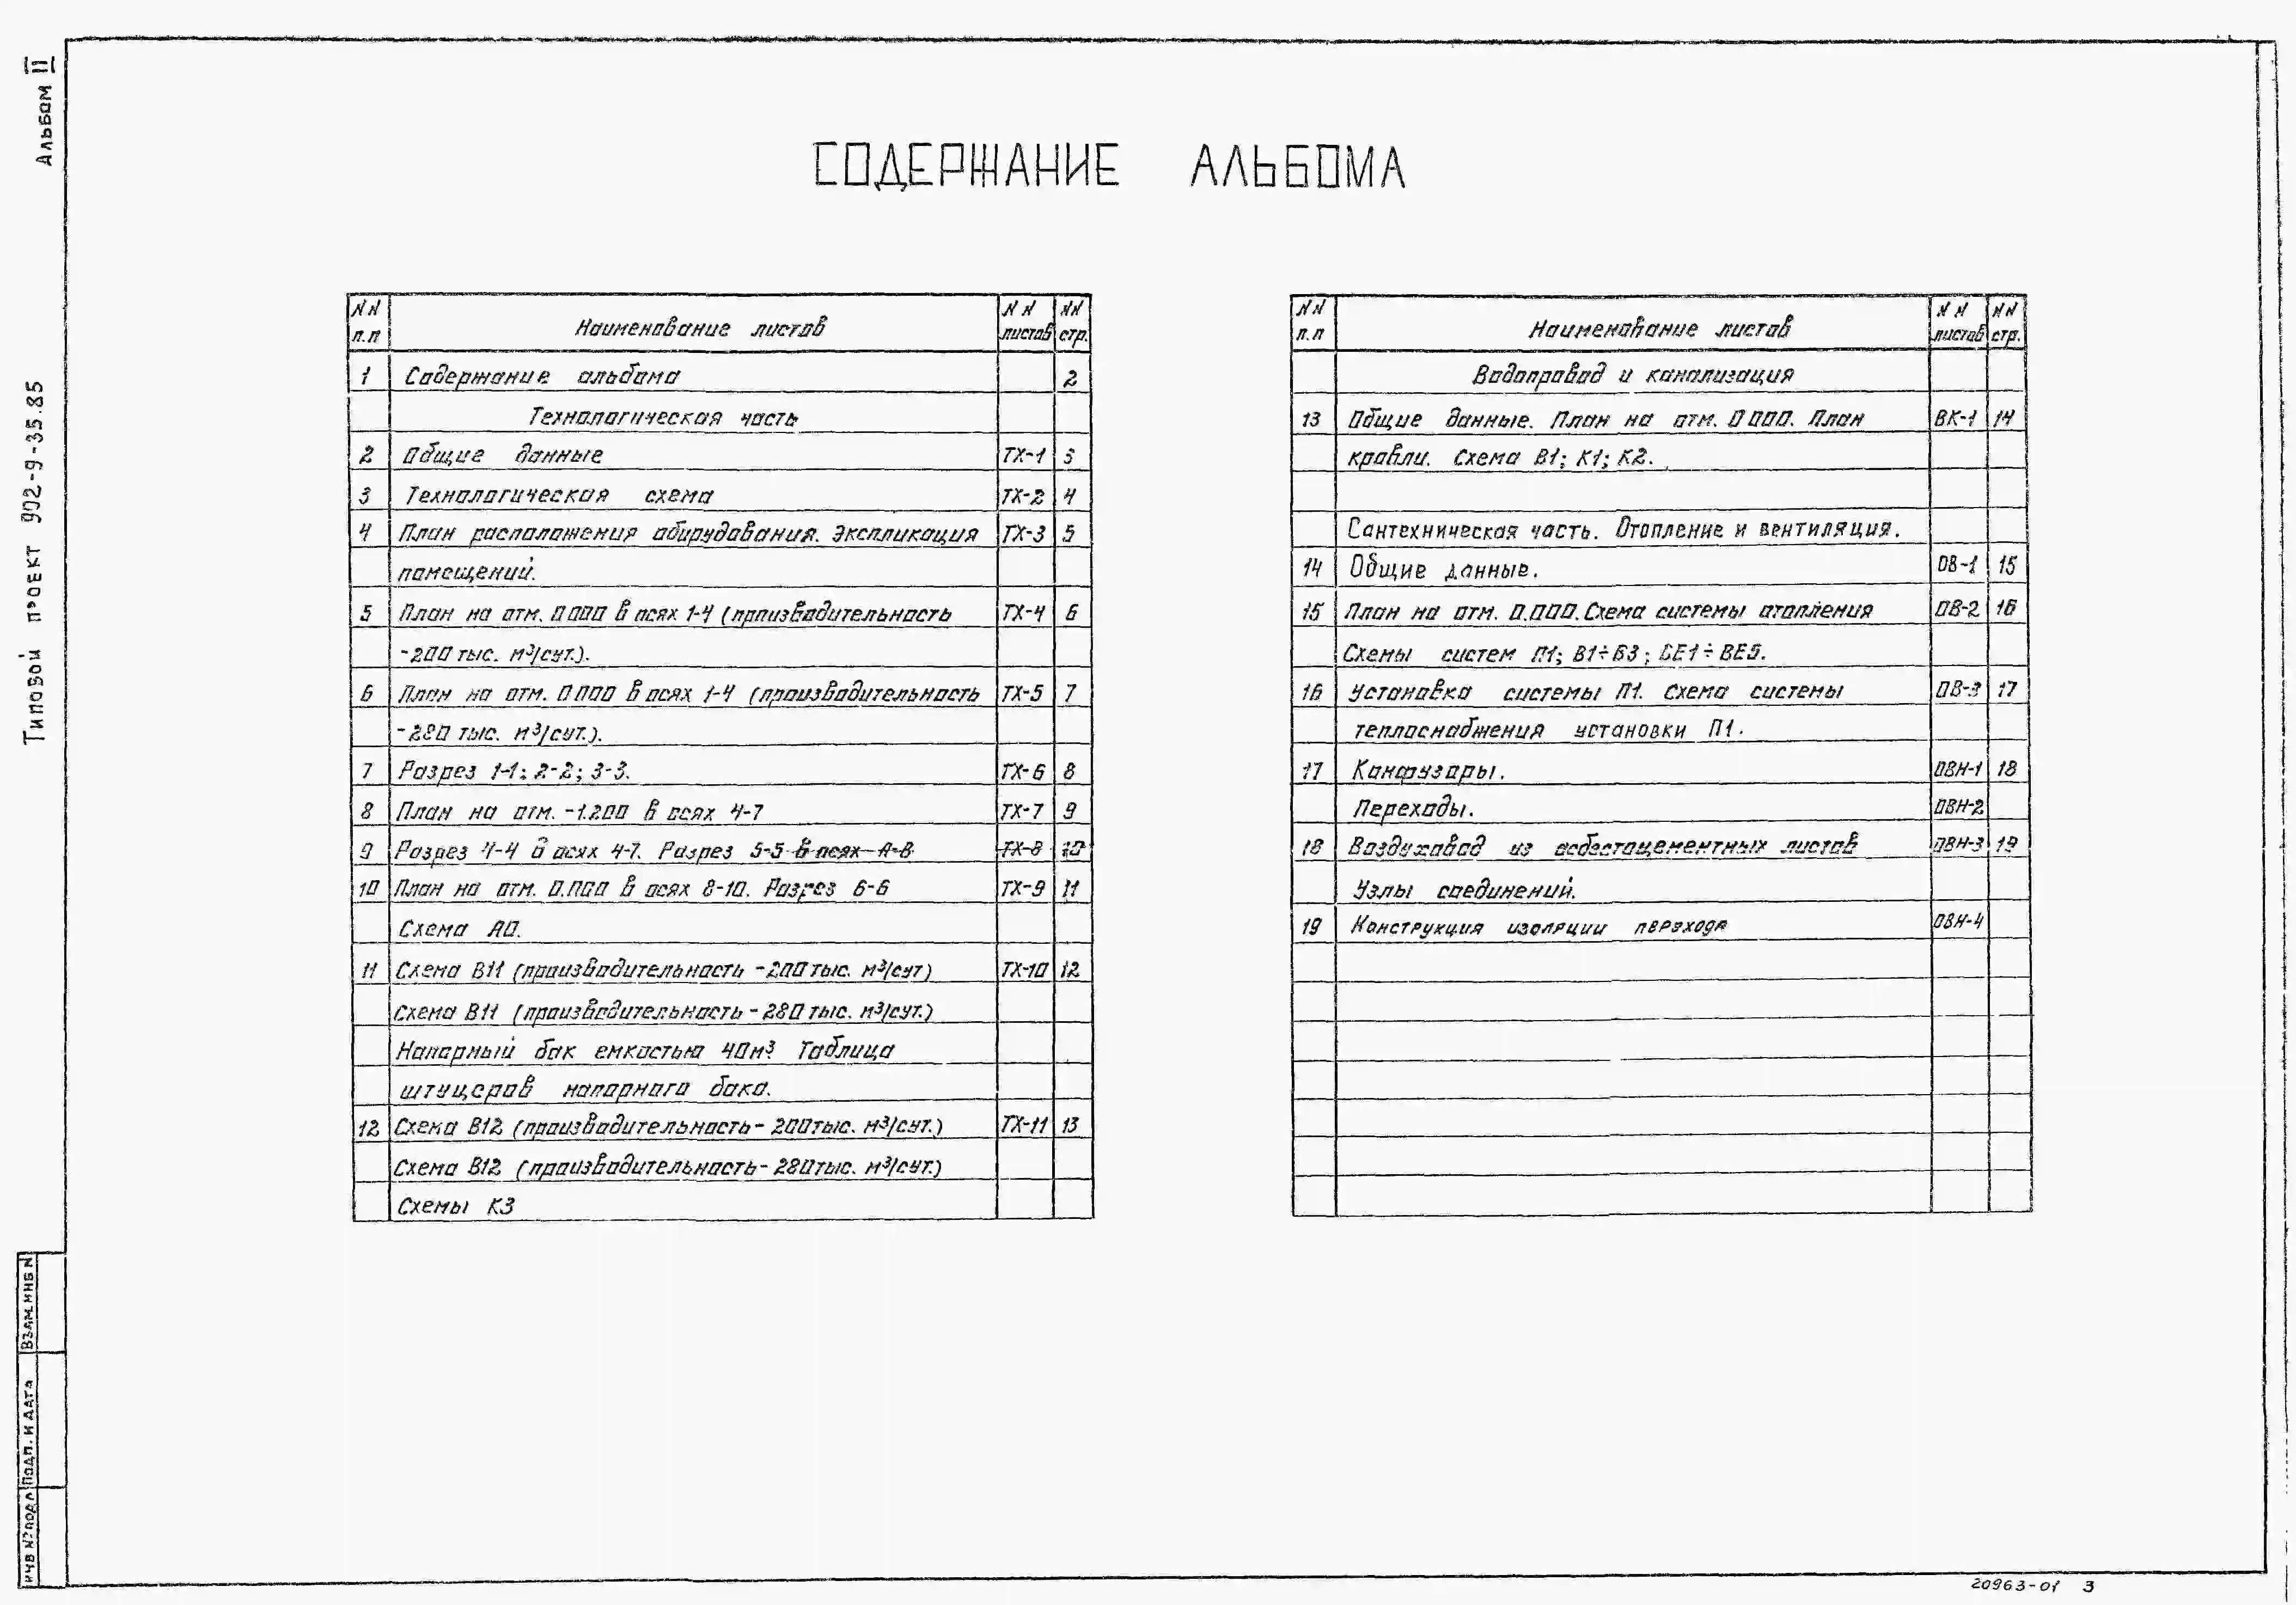 Альбом II
Типовой проект 902-9-35.85
СОДЕРЖАНИЕ АЛЬБОМА
NN п.п Наименование листов NN листов NN стр.
1 Содержание альбома 2
Технологическая часть
2 Общие данные ТХ-1 3
3 Технологическая схема ТХ-2 4
4 План расположения оборудования. Экспликация ТХ-3 5
помещений.
5 План на отм. 0.000 в осях 1-4 (производительность ТХ-4 6
-200 тыс. м³/сут.).
6 План на отм. 0.000 в осях 1-4 (производительность ТХ-5 7
-280 тыс. м³/сут.).
7 Разрез 1-1; 2-2; 3-3. ТХ-6 8
8 План на отм. -1.200 в осях 4-7 ТХ-7 9
9 Разрез 4-4 в осях 4-7. Разрез 5-5 в осях А-В ТХ-8 10
10 План на отм. 0.000 в осях 8-10. Разрез 6-6 ТХ-9 11
Схема А0.
11 Схема В11 (производительность -200 тыс. м³/сут) ТХ-10 12
Схема В11 (производительность - 280 тыс. м³/сут.)
Напорный бак емкостью 40м³ Таблица
штуцеров напорного бака.
12 Схема В12 (производительность - 200тыс. м³/сут.) ТХ-11 13
Схема В12 (производительность - 280тыс. м³/сут.)
Схемы К3
NN п.п Наименование листов NN листов NN стр.
Водопровод и канализация
13 Общие данные. План на отм. 0.000. План ВК-1 14
кровли. Схема В1; К1; К2.
Сантехническая часть. Отопление и вентиляция.
14 Общие данные. ОВ-1 15
15 План на отм. 0.000. Схема системы отопления ОВ-2 16
Схемы систем П1; В1÷В3; ВЕ1÷ВЕ5.
16 Установка системы П1. Схема системы ОВ-3 17
теплоснабжения установки П1.
17 Конфузоры. ОВН-1 18
Переходы. ОВН-2
18 Воздуховод из асбестоцементных листов ОВН-3 19
Узлы соединений.
19 Конструкция изоляции перехода ОВН-4
ИНВ N°подл Подп. и дата Взам.инв N
20963-01 3